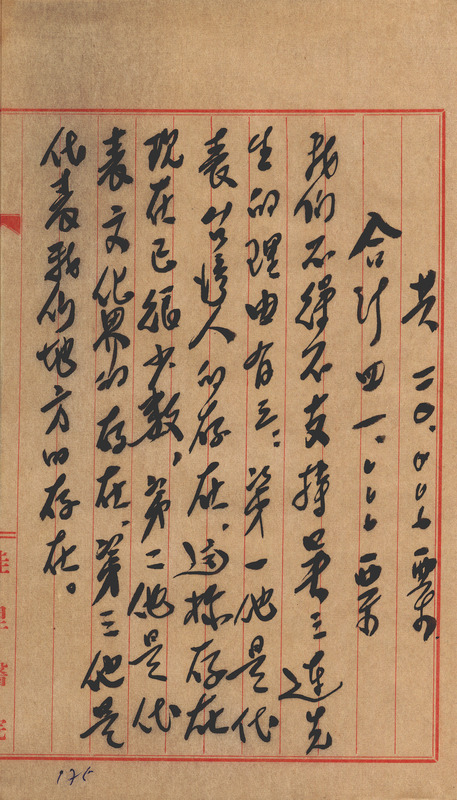 共二〇.〇〇〇票
合計四一.〇〇〇票
我们不得不支持吳三連先
生的理由有三：第一他是代
表台灣人的存在，這樣存在
現在已很少数，第二他是代
表文化界的存在，第三他是
代表我们地方的存在。
佳里醫院